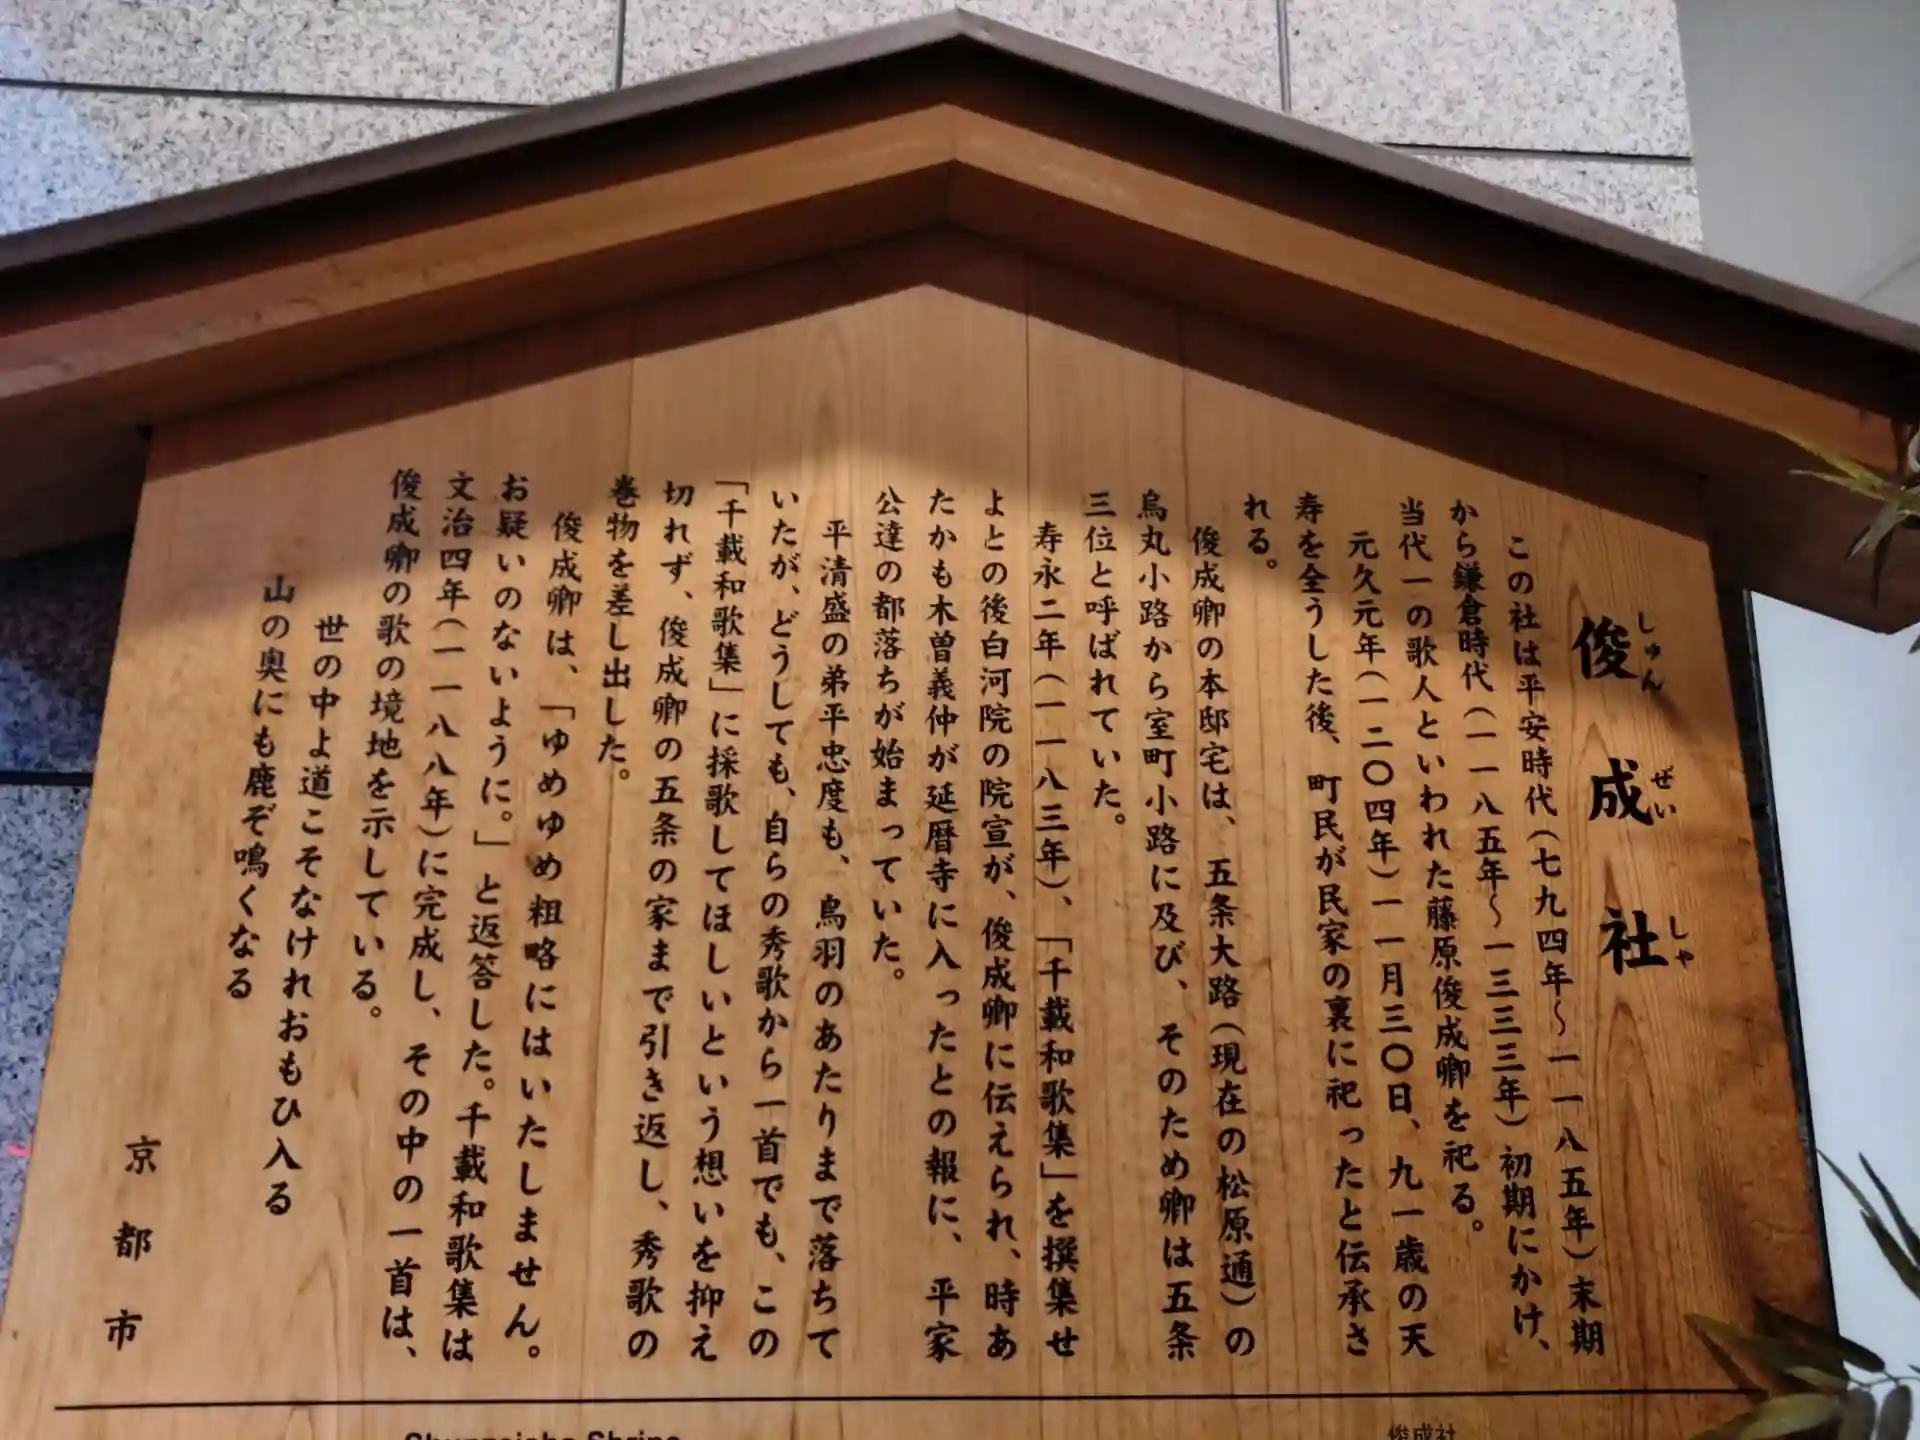 俊成社
しゅんぜいしゃ
この社は平安時代(七九四年〜一一八五年)末期
から鎌倉時代(一一八五年〜一三三三年)初期にかけ、
当代一の歌人といわれた藤原俊成卿を祀る。
元久元年(一二〇四年)一一月三〇日、九一歳の天
寿を全うした後、町民が民家の裏に祀ったと伝承さ
れる。
俊成卿の本邸宅は、五条大路(現在の松原通)の
烏丸小路から室町小路に及び、そのため卿は五条
三位と呼ばれていた。
寿永二年(一一八三年)、「千載和歌集」を撰集せ
よとの後白河院の院宣が、俊成卿に伝えられ、時あ
たかも木曽義仲が延暦寺に入ったとの報に、平家
公達の都落ちが始まっていた。
平清盛の弟平忠度も、鳥羽のあたりまで落ちて
いたが、どうしても、自らの秀歌から一首でも、この
「千載和歌集」に採歌してほしいという想いを抑え
切れず、俊成卿の五条の家まで引き返し、秀歌の
巻物を差し出した。
俊成卿は、「ゆめゆめ粗略にはいたしません。
お疑いのないように。」と返答した。千載和歌集は
文治四年(一一八八年)に完成し、その中の一首は、
俊成卿の歌の境地を示している。
世の中よ道こそなけれおもひ入る
山の奥にも鹿ぞ鳴くなる
京都市
Shunzeisha Shrine
俊成社